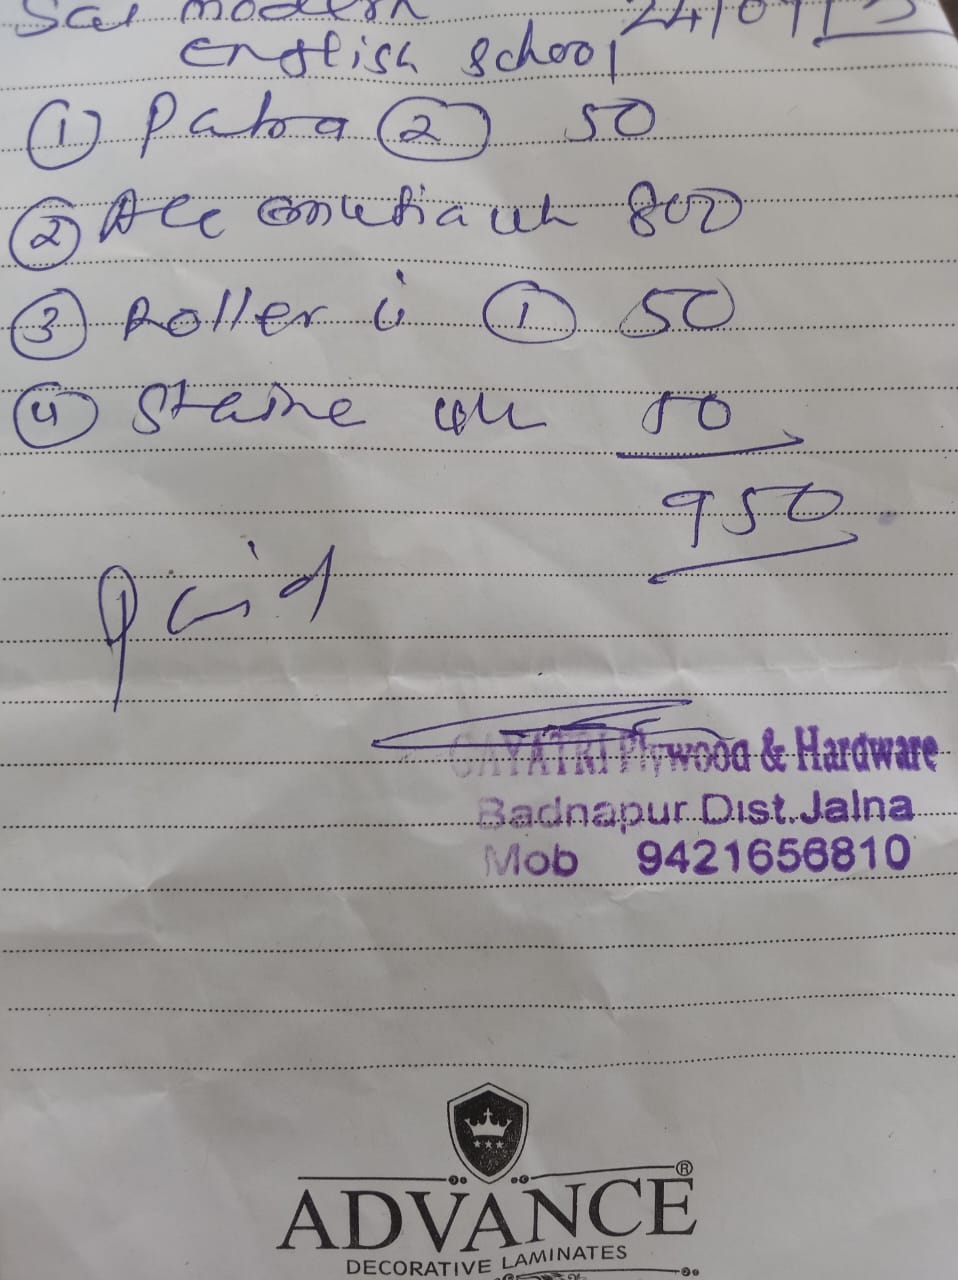 Sai modern 24/09/
English School
① Patra ② 50
② Ace 800
③ Roller ① 50
④ 50
950
Paid
GAYATRI Plywood & Hardware
Badnapur Dist. Jalna
Mob 9421656810
®
ADVANCE
DECORATIVE LAMINATES